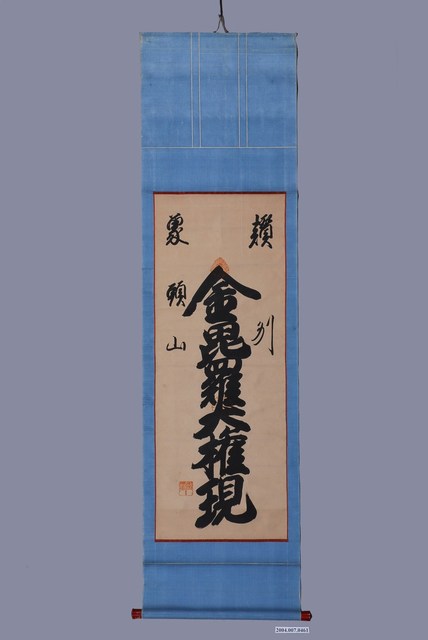 讃州
金毘羅大権現
象頭山
2004.007.0461